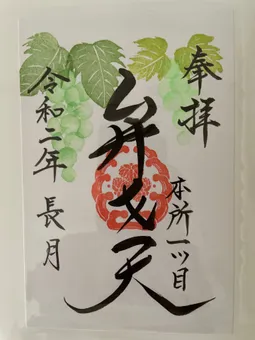 奉拝
本所一ツ目
弁才天
令和二年
長月